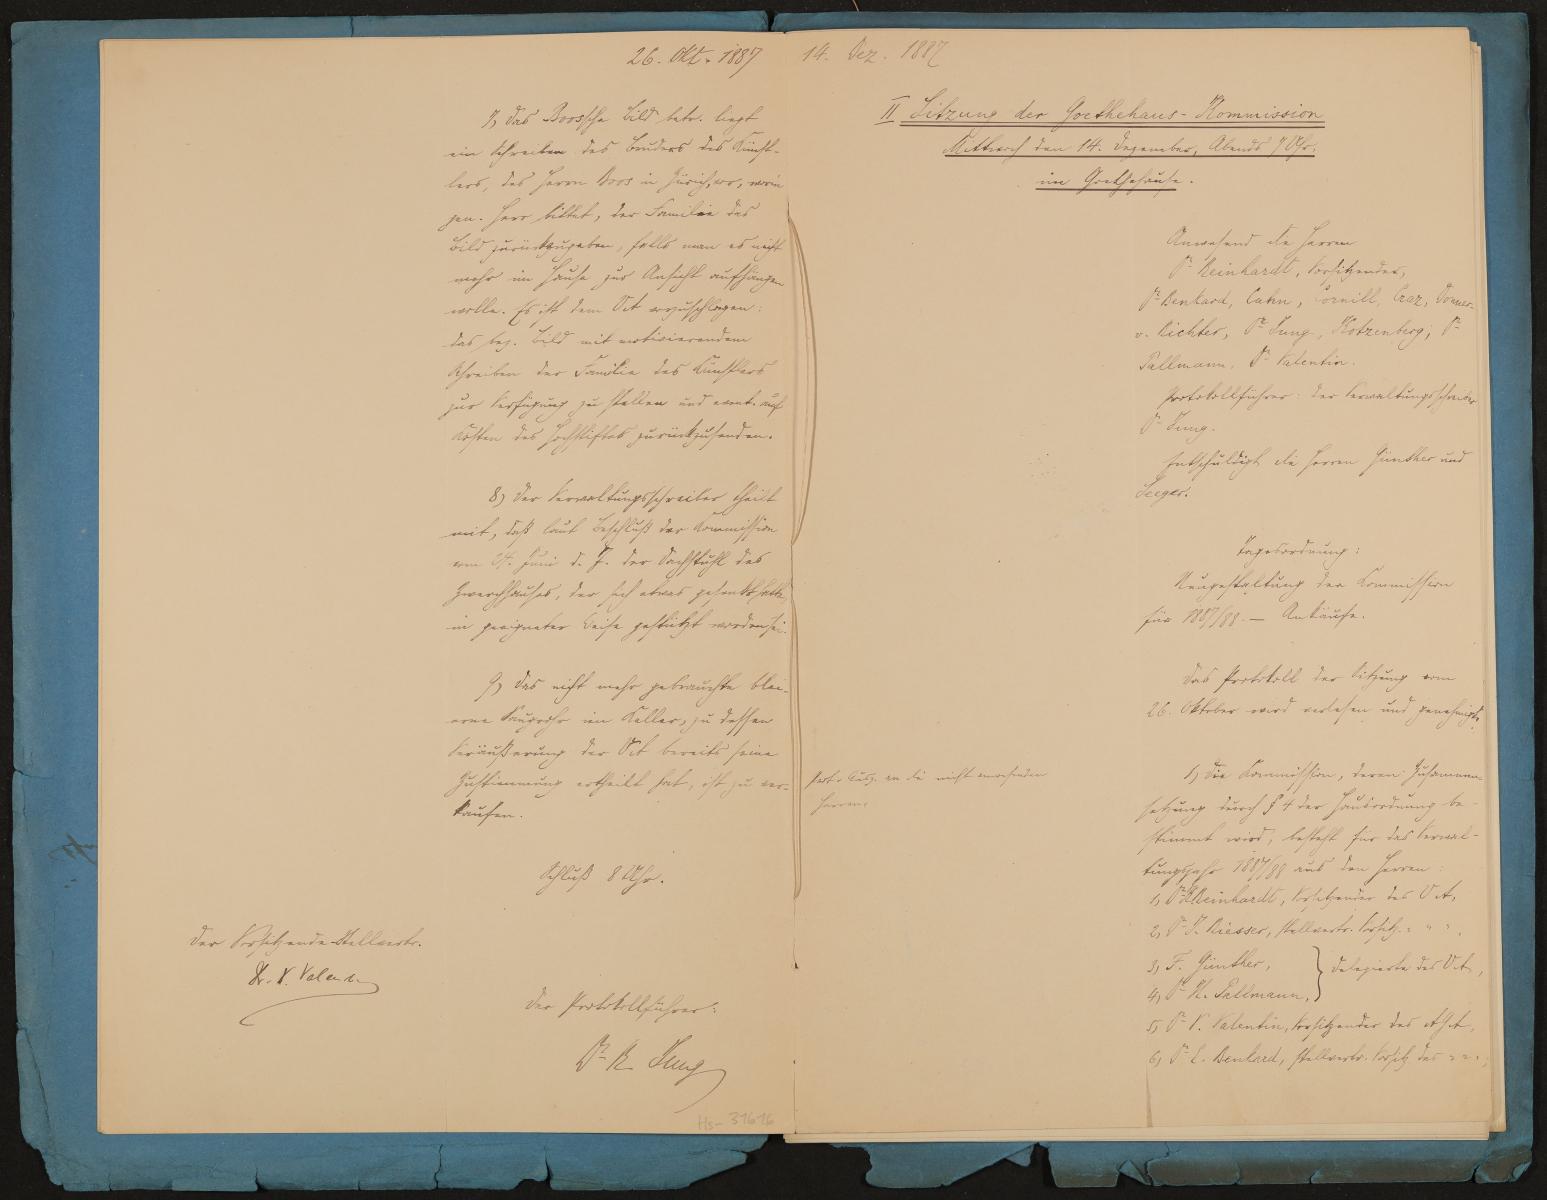 26. Okt. 1887
7, Das Boossche Bild betr. liegt
ein Schreiben des Bruders des Künst-
lers, des Herrn Boos in Zürich, vor, worin
gen. Herr bittet, der Familie das
Bild zurückzugeben, falls man es nicht
mehr im Hause zur Ansicht aufhängen
wolle. Es ist dem VA vorzuschlagen:
das bez. Bild mit motivierendem
Schreiben der Familie des Künstlers
zur Verfügung zu stellen und event. auf
Kosten des Hochstiftes zurückzusenden.
8, Der Verwaltungsschreiber theilt
mit, daß laut Beschluß der Kommission
vom 24. Juni d. J. der Dachstuhl des
Zwerchhauses, der sich etwas gesenkt hatte,
in geeigneter Weise gestützt worden sei.
9, Das nicht mehr gebrauchte blei-
erne Saugrohr im Keller, zu dessen
Veräußerung der VA bereits seine
Zustimmung ertheilt hat, ist zu ver-
kaufen.
Schluß 8 Uhr.
Der Vorsitzende-Stellvertr.
Dr. V. Valentin
Der Protokollführer:
Dr R. Jung
Hs-31616
14. Dez. 1887
II Sitzung der Goethehaus-Kommission
Mittwoch den 14. Dezember, Abends 7 Uhr.
im Goethehause.
Anwesend die Herren
Dr Reinhardt, Vorsitzender,
Dr Benkard, Cahn, Cornill, Craz, Donner-
v. Richter, Dr Jung, Kotzenberg, Dr
Pallmann, Dr Valentin.
Protokollführer: der Verwaltungsschreiber
Dr Jung.
Entschuldigt die Herren Günther und
Seeger.
Tagesordnung:
Neugestaltung der Commission
für 1887/88. — Ankäufe.
Das Protokoll der Sitzung vom
26. Oktober wird verlesen und genehmigt.
Prot. Ausz. an die nicht anwesenden
Herren.
1, Die Kommission, deren Zusammen-
setzung durch § 4 der Hausordnung be-
stimmt wird, besteht für das Verwal-
tungsjahr 1887/88 aus den Herren:
1, Dr K. Reinhardt, Vorsitzender des VA,
2, Dr J. Riesser, stellvertr. Vorsitz. " " ",
3, F. Günther,
4, Dr H. Pallmann, } Delegierte des VA,
5, Dr V. Valentin, Vorsitzender des AGA,
6, Dr L. Benkard, stellvertr. Vorsitz des " " ",